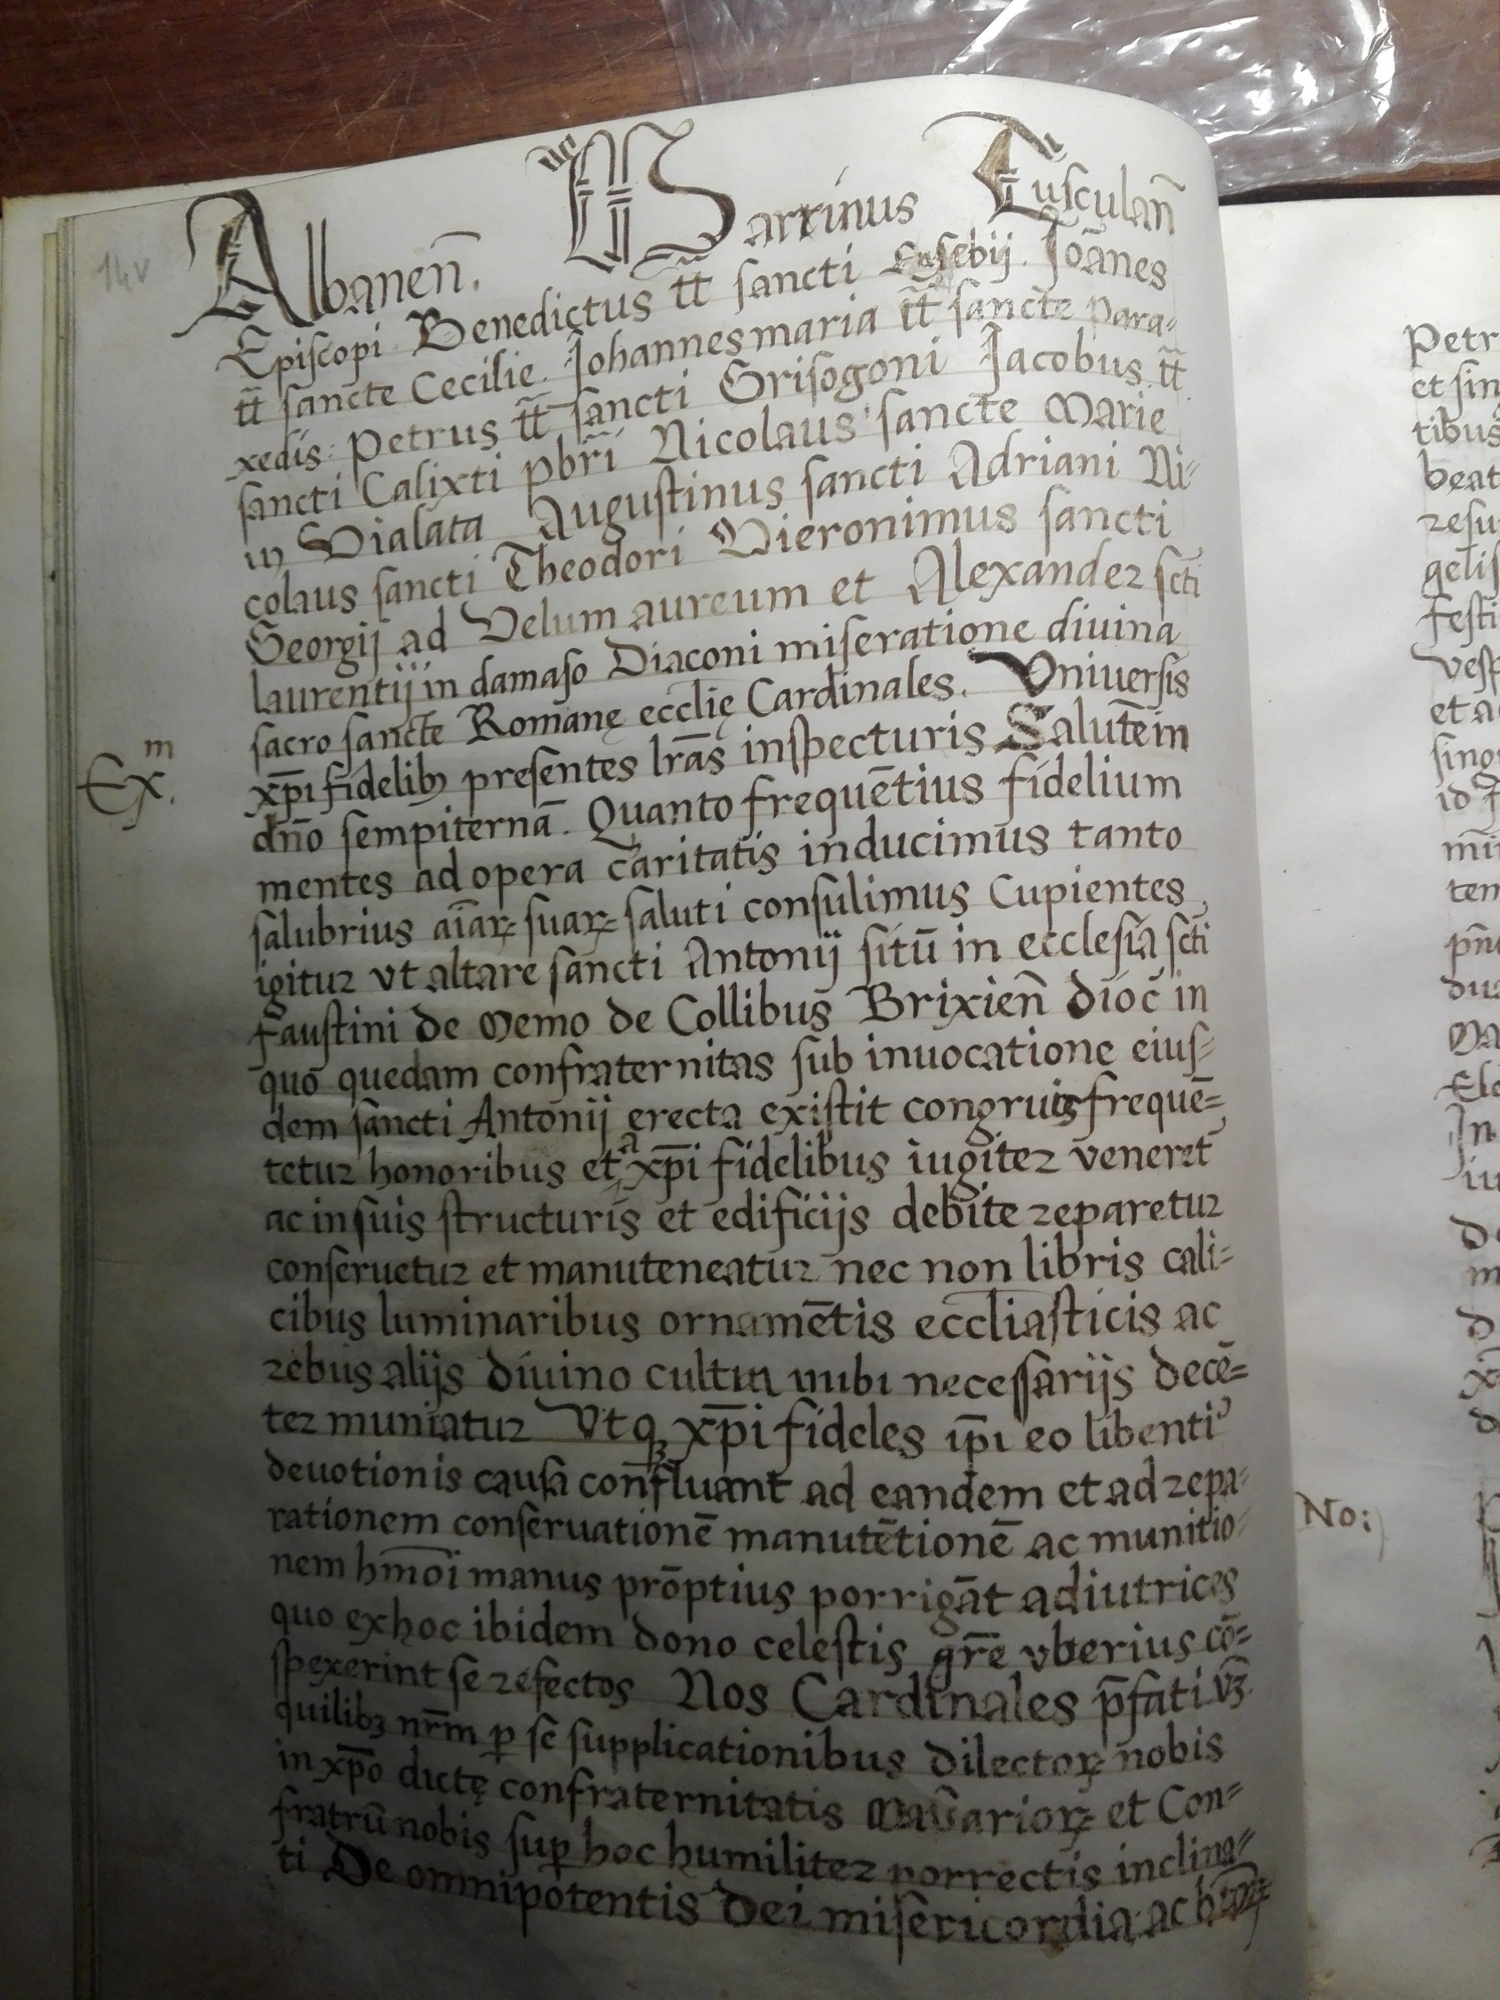 14v
Albanen̄. ac Martinus Tusculan̄
Episcopi Benedictus tt̄ sancti Eusebij. Joānes
tt̄ sancte Cecilie. Johannesmaria tt̄ sancte Para⸗
xedis: Petrus tt̄ sancti Grisogoni Jacobus tt̄
sancti Calixti pbr̄i Nicolaus sancte Marie
in Vialata Augustinus sancti Adriani Ni⸗
colaus sancti Theodori Hieronimus sancti
Georgij ad Velum aureum et Alexander scti
laurentij in damaso Diaconi miseratione diuina
sacro sancte Romanę ecclię Cardinales. Vniuersis
Exᵐ.
xp̄i fidelibꝫ presentes lr̄as inspecturis Salutēm in
dn̄o sempiternā. Quanto frequētius fidelium
mentes ad opera caritatis inducimus tanto
salubrius aīaꝝ suaꝝ saluti consulimus Cupientes
igitur vt altare sancti Antonij sitū in ecclesia scti
faustini de Memo de Collibus Brixien̄ dioc̄ in
quo quedam confraternitas sub inuocatione eius⸗
dem sancti Antonij erecta existit congruis frequē⸗
tetur honoribus et a xp̄i fidelibus iugiter veneret̃
ac in suis structuris et edificijs debite reparetur
conseruetur et manuteneatur nec non libris cali⸗
cibus luminaribus ornamētis eccliasticis ac
rebus alijs diuino cultui inibi necessarijs decē⸗
ter muniatur Vtqꝫ xp̄i fideles ip̄i eo libentiꝰ
deuotionis causa confluant ad eandem et ad repa⸗
rationem conseruationē manutētionē ac munitio⸗
nem hmōi manus prōptius porrigāt adiutrices
quo exhoc ibidem dono celestis gr̄e vberius cō⸗
spexerint se refectos Nos Cardinales p̄fati vꝫ.
quilibꝫ nr̄m ꝑ se supplicationibus dilectoꝝ nobis
in xp̄o dictę confraternitatis Massarioꝝ et Con⸗
fratrū nobis suꝑ hoc humiliter porrectis inclina⸗
ti De omnipotentis Dei misericordia ac
No: